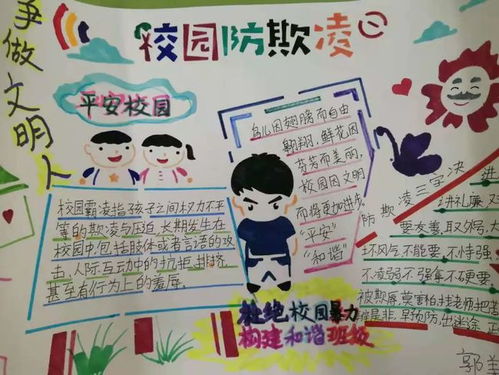 校园防欺凌
争做文明人
平安校园
校园霸凌指孩子之间权力不平
等的欺凌与压迫,长期发生在
校园中,包括肢体或者言语的攻
击、人际互动中的抗拒排挤,
甚至有行为上的羞辱。
鸟儿因翅膀而自由
翱翔,鲜花因
芬芳而美丽,
校园因文明
而将更进步,
"平安"
"和谐"
杜绝校园暴力
构建和谐班级
防欺凌三字决
进
讲礼廉
要友善,取外号,大
坏风气,不能要,不恃强
不凌弱,不强拿,不硬要,
被欺辱,莫害怕,找老师,把
早预防,出迷途
郭